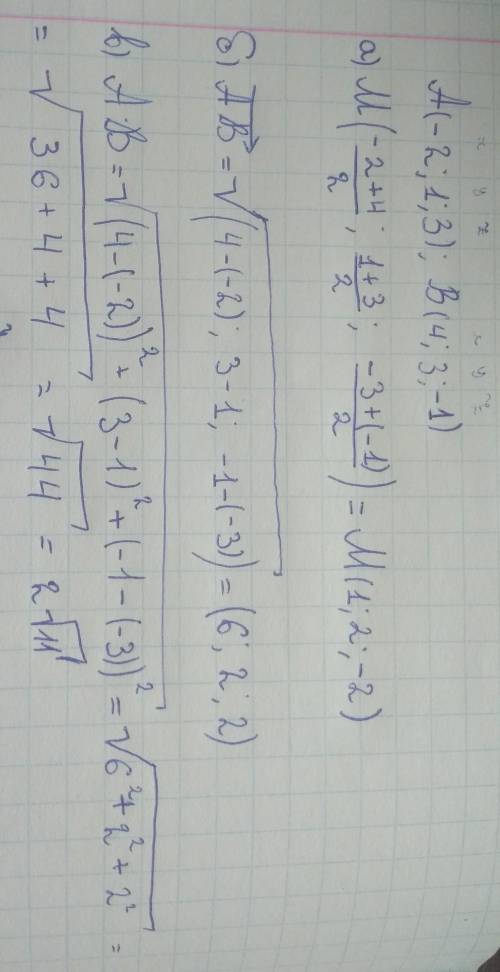 x y z x y z
A(-2; 1; 3); B(4; 3; -1)
а) M(\frac{-2+4}{2}; \frac{1+3}{2}; \frac{-3+(-1)}{2}) = M(1; 2; -2)
б) \overrightarrow{AB} = \sqrt{(4-(-2); 3-1; -1-(-3))} = (6; 2; 2)
в) AB = \sqrt{(4-(-2))^2 + (3-1)^2 + (-1-(-3))^2} = \sqrt{6^2+2^2+2^2} =
= \sqrt{36+4+4} = \sqrt{44} = 2\sqrt{11}